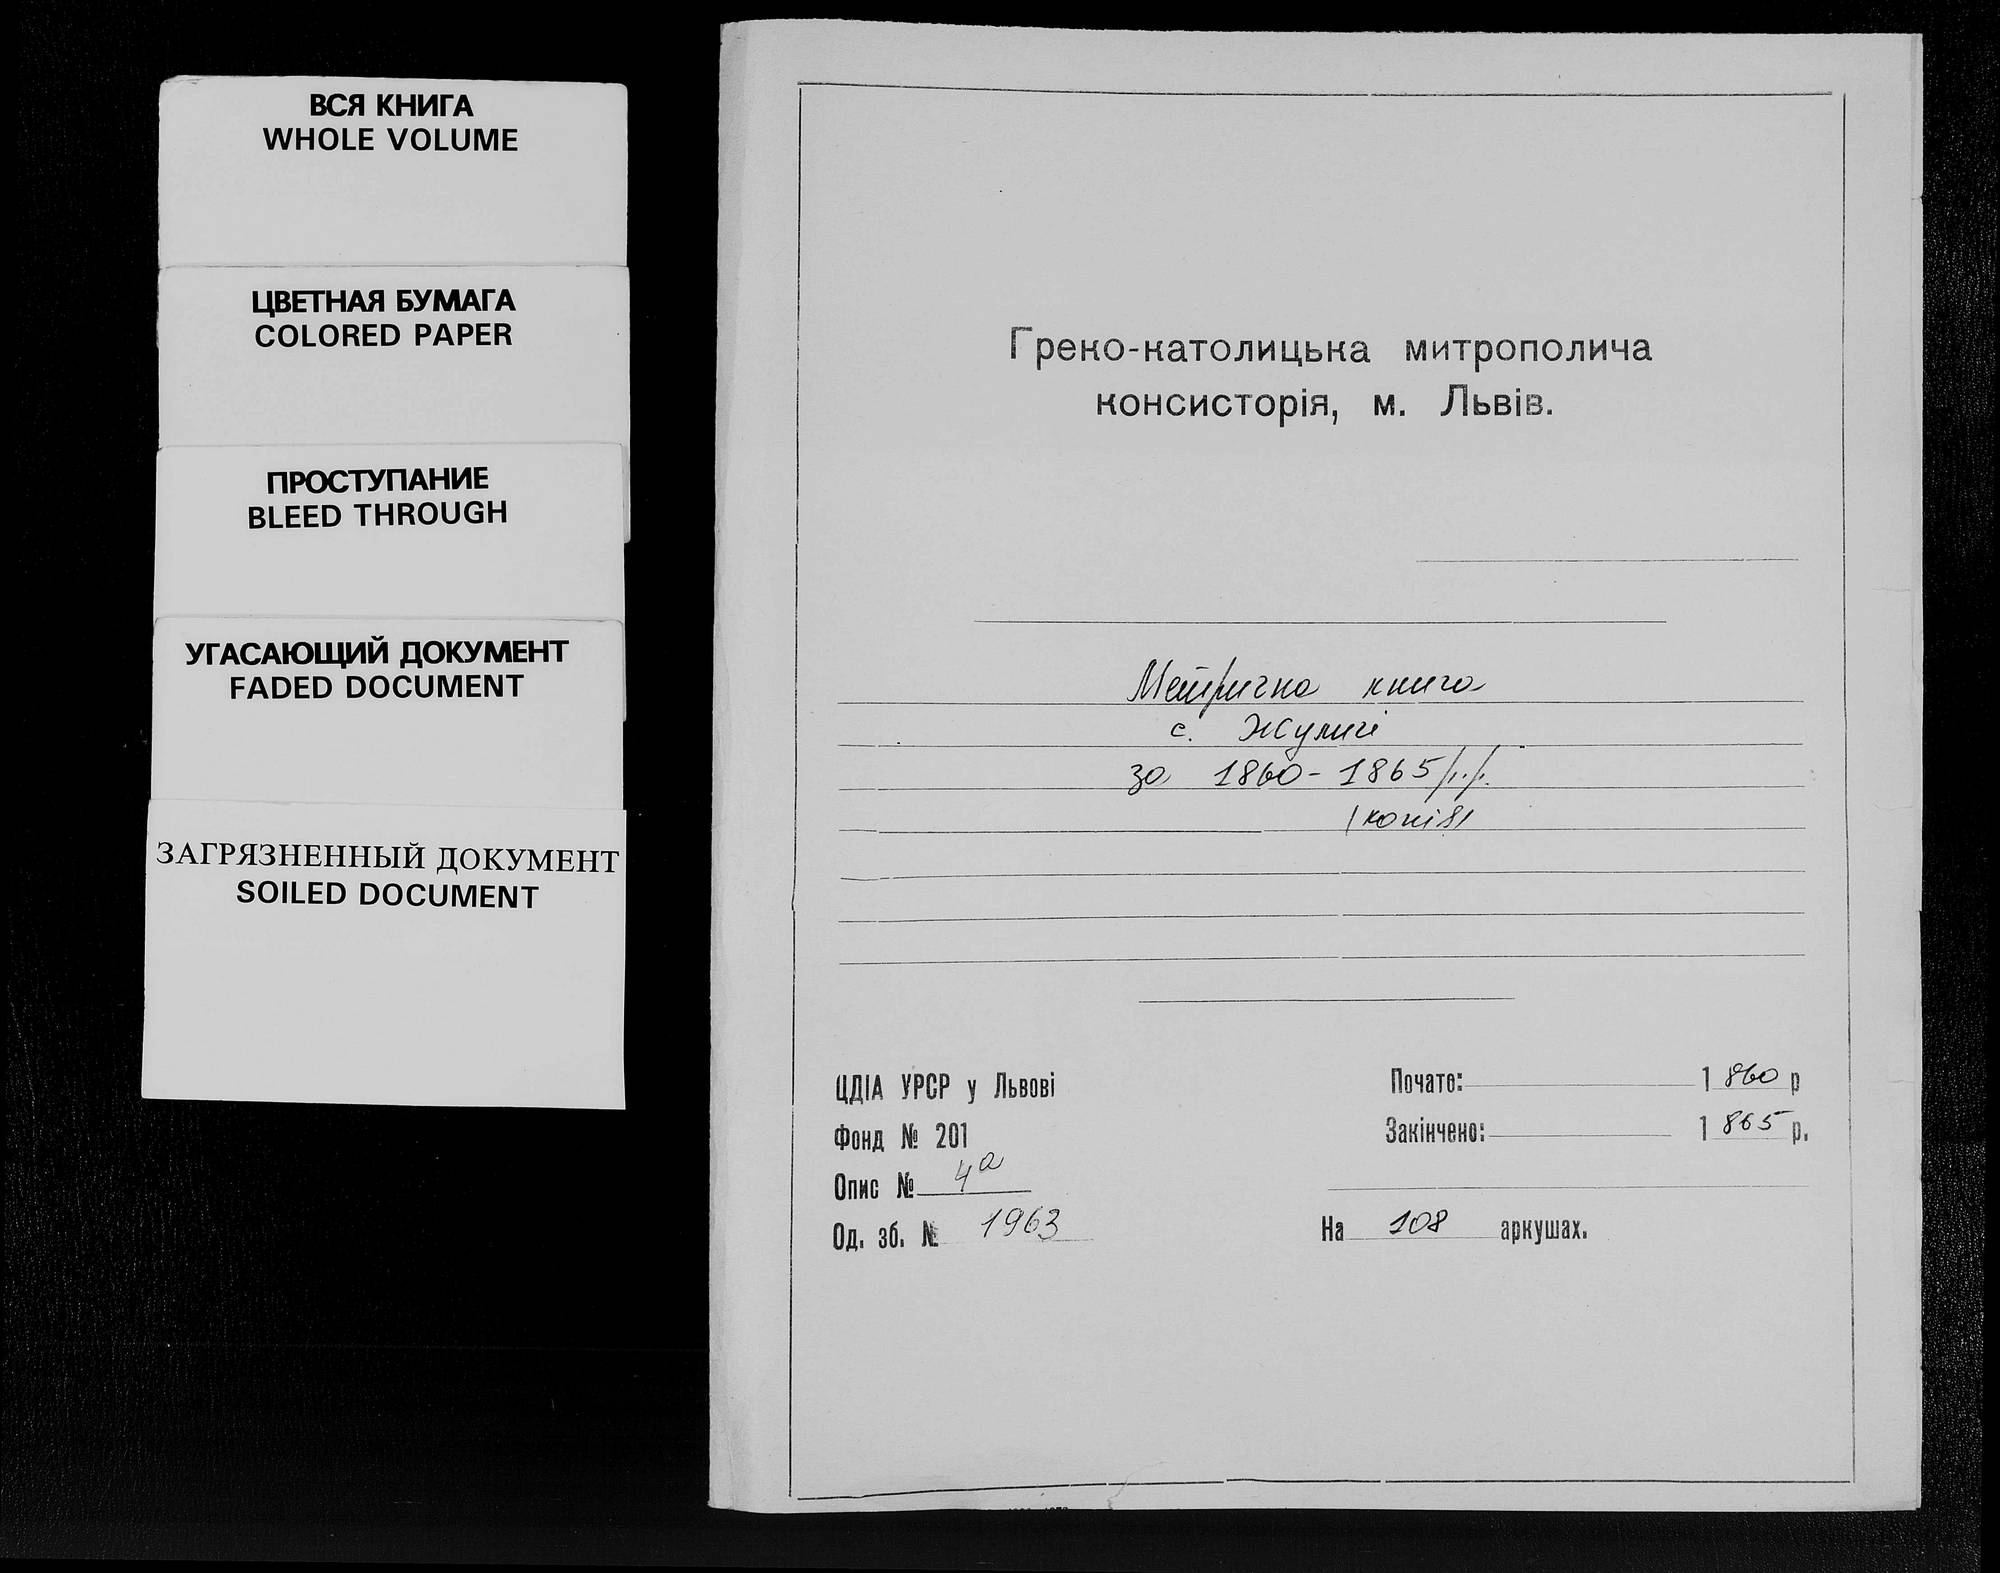 ВСЯ КНИГА
WHOLE VOLUME
ЦВЕТНАЯ БУМАГА
COLORED PAPER
ПРОСТУПАНИЕ
BLEED THROUGH
УГАСАЮЩИЙ ДОКУМЕНТ
FADED DOCUMENT
ЗАГРЯЗНЕННЫЙ ДОКУМЕНТ
SOILED DOCUMENT
Греко-католицька митрополича
консисторія, м. Львів.
Метрична книга
с. Жуличі
за 1860-1865 р.р.
/копія/
ЦДІА УРСР у Львові
Фонд № 201
Опис № 4а
Од. зб. № 1963
Почато: 1860 р
Закінчено: 1865 р.
На 108 аркушах.